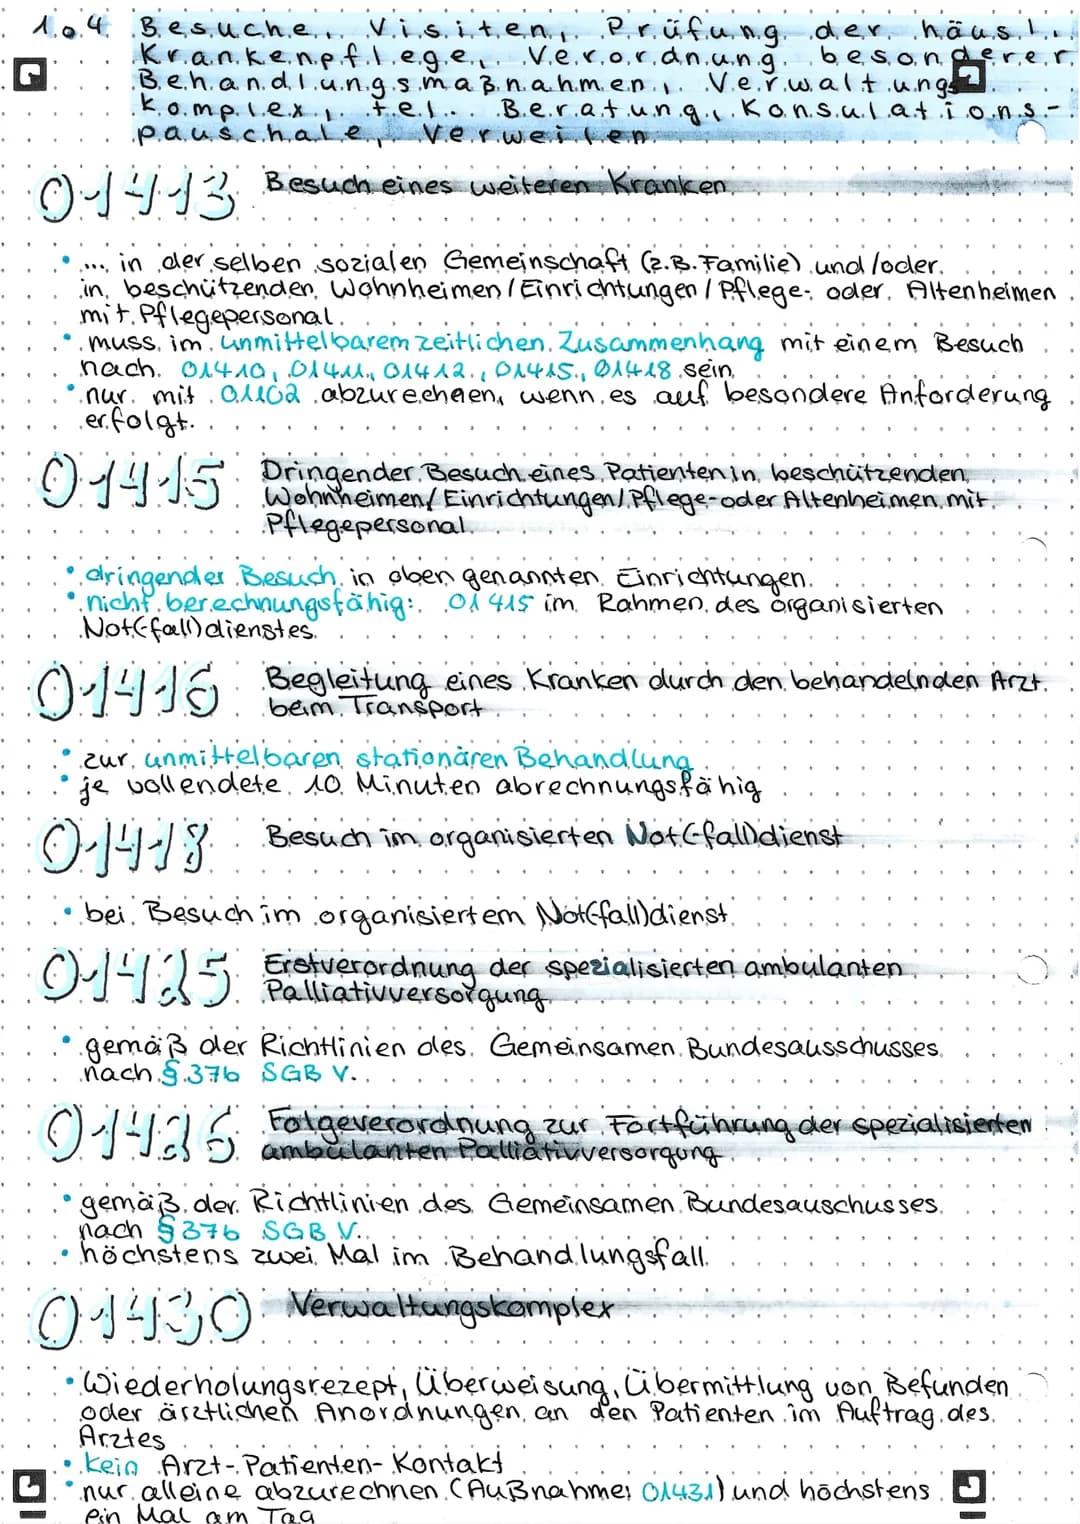 1.0.4. Besuche, Visiten, Prüfung der häusl.
Krankenpflege, Verordnung besonderer
Behandlungsmaßnahmen, Verwaltungs
komplex, tel. Beratung, Konsulations-
pauschale, Verweilen
01413 Besuch eines weiteren Kranken
• ... in der selben sozialen Gemeinschaft (z.B. Familie) und/oder
in beschützenden Wohnheimen/Einrichtungen/Pflege- oder Altenheimen
mit Pflegepersonal
• muss im unmittelbarem zeitlichen Zusammenhang mit einem Besuch
nach 01410, 01411, 01412, 01415, 01418 sein
• nur mit 01102 abzurechnen, wenn es auf besondere Anforderung
erfolgt.
01415 Dringender Besuch eines Patienten in beschützenden
Wohnheimen/Einrichtungen/Pflege- oder Altenheimen mit
Pflegepersonal
• dringender Besuch in oben genannten Einrichtungen
• nicht berechnungsfähig: 01415 im Rahmen des organisierten
Not(fall)dienstes
01416 Begleitung eines Kranken durch den behandelnden Arzt
beim Transport
• zur unmittelbaren stationären Behandlung
• je vollendete 10 Minuten abrechnungsfähig
01418 Besuch im organisierten Not(-fall)dienst
• bei Besuch im organisiertem Not(-fall)dienst
01425 Erstverordnung der spezialisierten ambulanten
Palliativversorgung
• gemäß der Richtlinien des Gemeinsamen Bundesausschusses
nach § 37b SGB V.
01426 Folgeverordnung zur Fortführung der spezialisierten
ambulanten Palliativversorgung
• gemäß der Richtlinien des Gemeinsamen Bundesauschusses
nach § 37b SGB V.
• höchstens zwei Mal im Behandlungsfall
01430 Verwaltungskomplex
• Wiederholungsrezept, Überweisung, Übermittlung von Befunden
oder ärztlichen Anordnungen an den Patienten im Auftrag des
Arztes
• kein Arzt-Patienten-Kontakt
• nur alleine abzurechnen (Außnahme: 01431) und höchstens
ein Mal am Tag